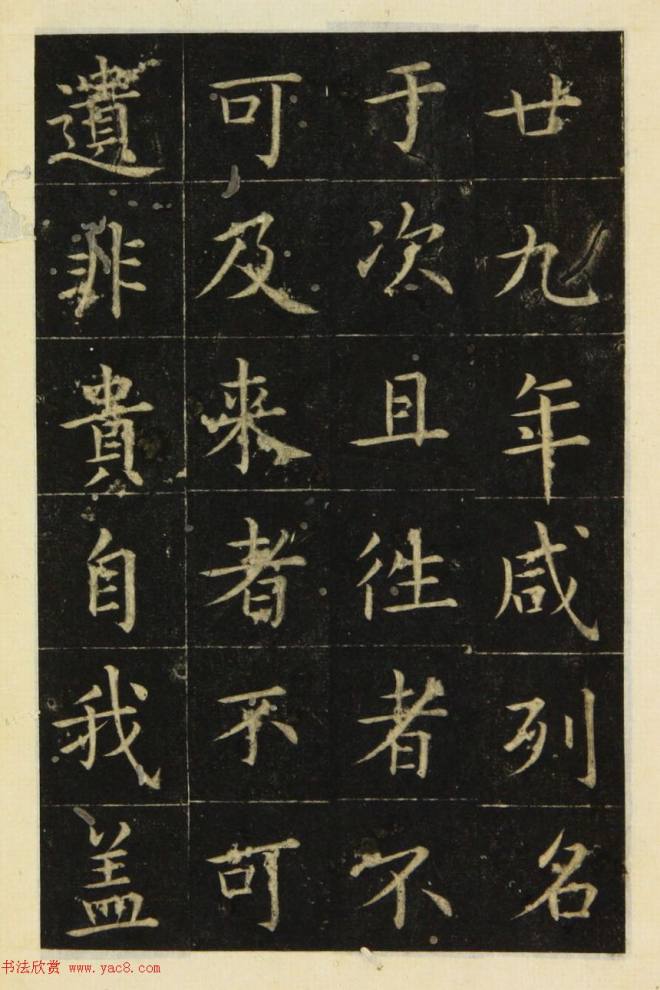 廿九年咸列名
于次且徃者不
可及来者不可
遺非貴自我盖
书法欣赏 www.yac8.com